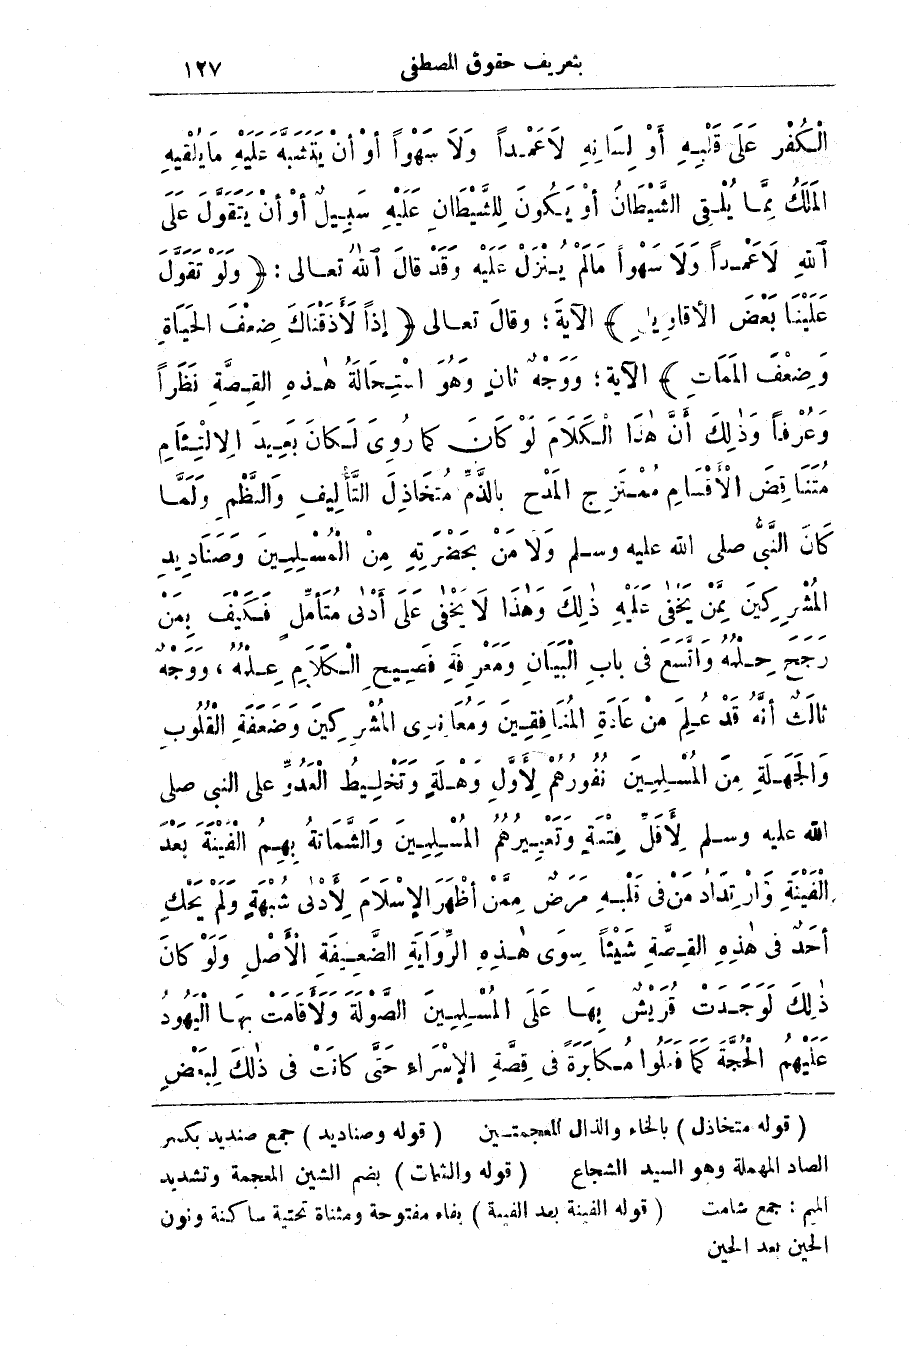 بتعريف حقوق المصطفى ١٢٧
الْكُفْرِ عَلَى قَلْبِهِ أَوْ لِسَانِهِ لَا عَمْداً وَلَا سَهْواً أَوْ أَنْ يَتَشَبَّهَ عَلَيْهِ مَا يُلْقِيهِ
الْمَلَكُ مِمَّا يُلْقِي الشَّيْطَانُ أَوْ يَكُونَ لِلشَّيْطَانِ عَلَيْهِ سَبِيلٌ أَوْ أَنْ يَتَقَوَّلَ عَلَى
اللهِ لَا عَمْداً وَلَا سَهْواً مَا لَمْ يُنْزَلْ عَلَيْهِ وَقَدْ قَالَ اللهُ تعالى : ﴿ وَلَوْ تَقَوَّلَ
عَلَيْنَا بَعْضَ الأقاوِيلِ ﴾ الآيَةَ ؛ وقالَ تعالى ﴿ إذاً لَأَذَقْنَاكَ ضِعْفَ الحَيَاةِ
وَضِعْفَ الْمَمَاتِ ﴾ الآية ؛ وَوَجْهٌ ثانٍ وَهُوَ اسْتِحَالَةُ هٰذِهِ القِصَّةِ نَظَراً
وَعُرْفاً وَذٰلِكَ أَنَّ هٰذَا الْكَلَامَ لَوْ كَانَ كما رُوِىَ لَكانَ بَعِيدَ الِالْتِئَامِ
مُتَنَاقِضَ الْأَقْسَامِ مُمْتَزِجِ المَدْحِ بالذَّمِّ مُتَخَاذِلَ التَّأْلِيفِ وَالنَّظْمِ وَلَمَّا
كَانَ النَّبِىُّ صلى الله عليه وسلم وَلَا مَنْ بِحَضْرَتِهِ مِنْ الْمُسْلِمِينَ وَصَنَادِيدِ
المُشْرِكِينَ مِمَّنْ يَخْفَى عَلَيْهِ ذٰلِكَ وَهٰذَا لَا يَخْفَى عَلَى أَدْنَى مُتَأَمِّلٍ فَكَيْفَ بِمَنْ
رَجَحَ حِلْمُهُ وَاتَّسَعَ فى بابِ الْبَيَانِ وَمَعْرِفَةِ فَصِيحِ الْكَلَامِ عِلْمُهُ ، وَوَجْهٌ
ثالِثٌ أنَّهُ قَدْ عُلِمَ مِنْ عَادَةِ المُنَافِقِينَ وَمُعَانِدِى المُشْرِكِينَ وَضَعَفَةِ القُلُوبِ
وَالْجَهَلَةِ مِنَ المُسْلِمِينَ نُفُورُهُمْ لِأَوَّلِ وَهْلَةٍ وَتَخْلِيطُ الْعَدُوِّ على النبى صلى
الله عليه وسلم لِأَقَلِّ فِتْنَةٍ وَتَعْيِيرُهُمُ المُسْلِمِينَ وَالشَّمَاتَةُ بِهِمُ الْفَيْنَةَ بَعْدَ
الْفَيْنَةِ وَارْتِدَادُ مَنْ فى قَلْبِهِ مَرَضٌ مِمَّنْ أَظْهَرَ الإسْلَامَ لِأَدْنَى شُبْهَةٍ وَلَمْ يَحْكِ
أَحَدٌ فى هٰذِهِ القِصَّةِ شَيْئاً سِوَى هٰذِهِ الرِّوَايَةِ الضَّعِيفَةِ الْأَصْلِ وَلَوْ كانَ
ذٰلِكَ لَوَجَدَتْ قُرَيْشٌ بِهَا عَلَى المُسْلِمِينَ الصَّوْلَةَ وَلَأَقَامَتْ بِهَا الْيَهُودُ
عَلَيْهِمُ الْحُجَّةَ كَمَا فَعَلُوا مُكابَرَةً فى قِصَّةِ الإِسْرَاءِ حَتَّى كانَتْ فى ذٰلِكَ لِبَعْضِ
( قوله متخاذل ) بالخاء والذال المعجمتين ( قوله وصناديد ) جمع صنديد بكسر
الصاد المهملة وهو السيد الشجاع ( قوله والشمات ) بضم الشين المعجمة وتشديد
الميم : جمع شامت ( قوله الفينة بعد الفينة ) بفاء مفتوحة ومثناة تحتية ساكنة ونون
الحين بعد الحين